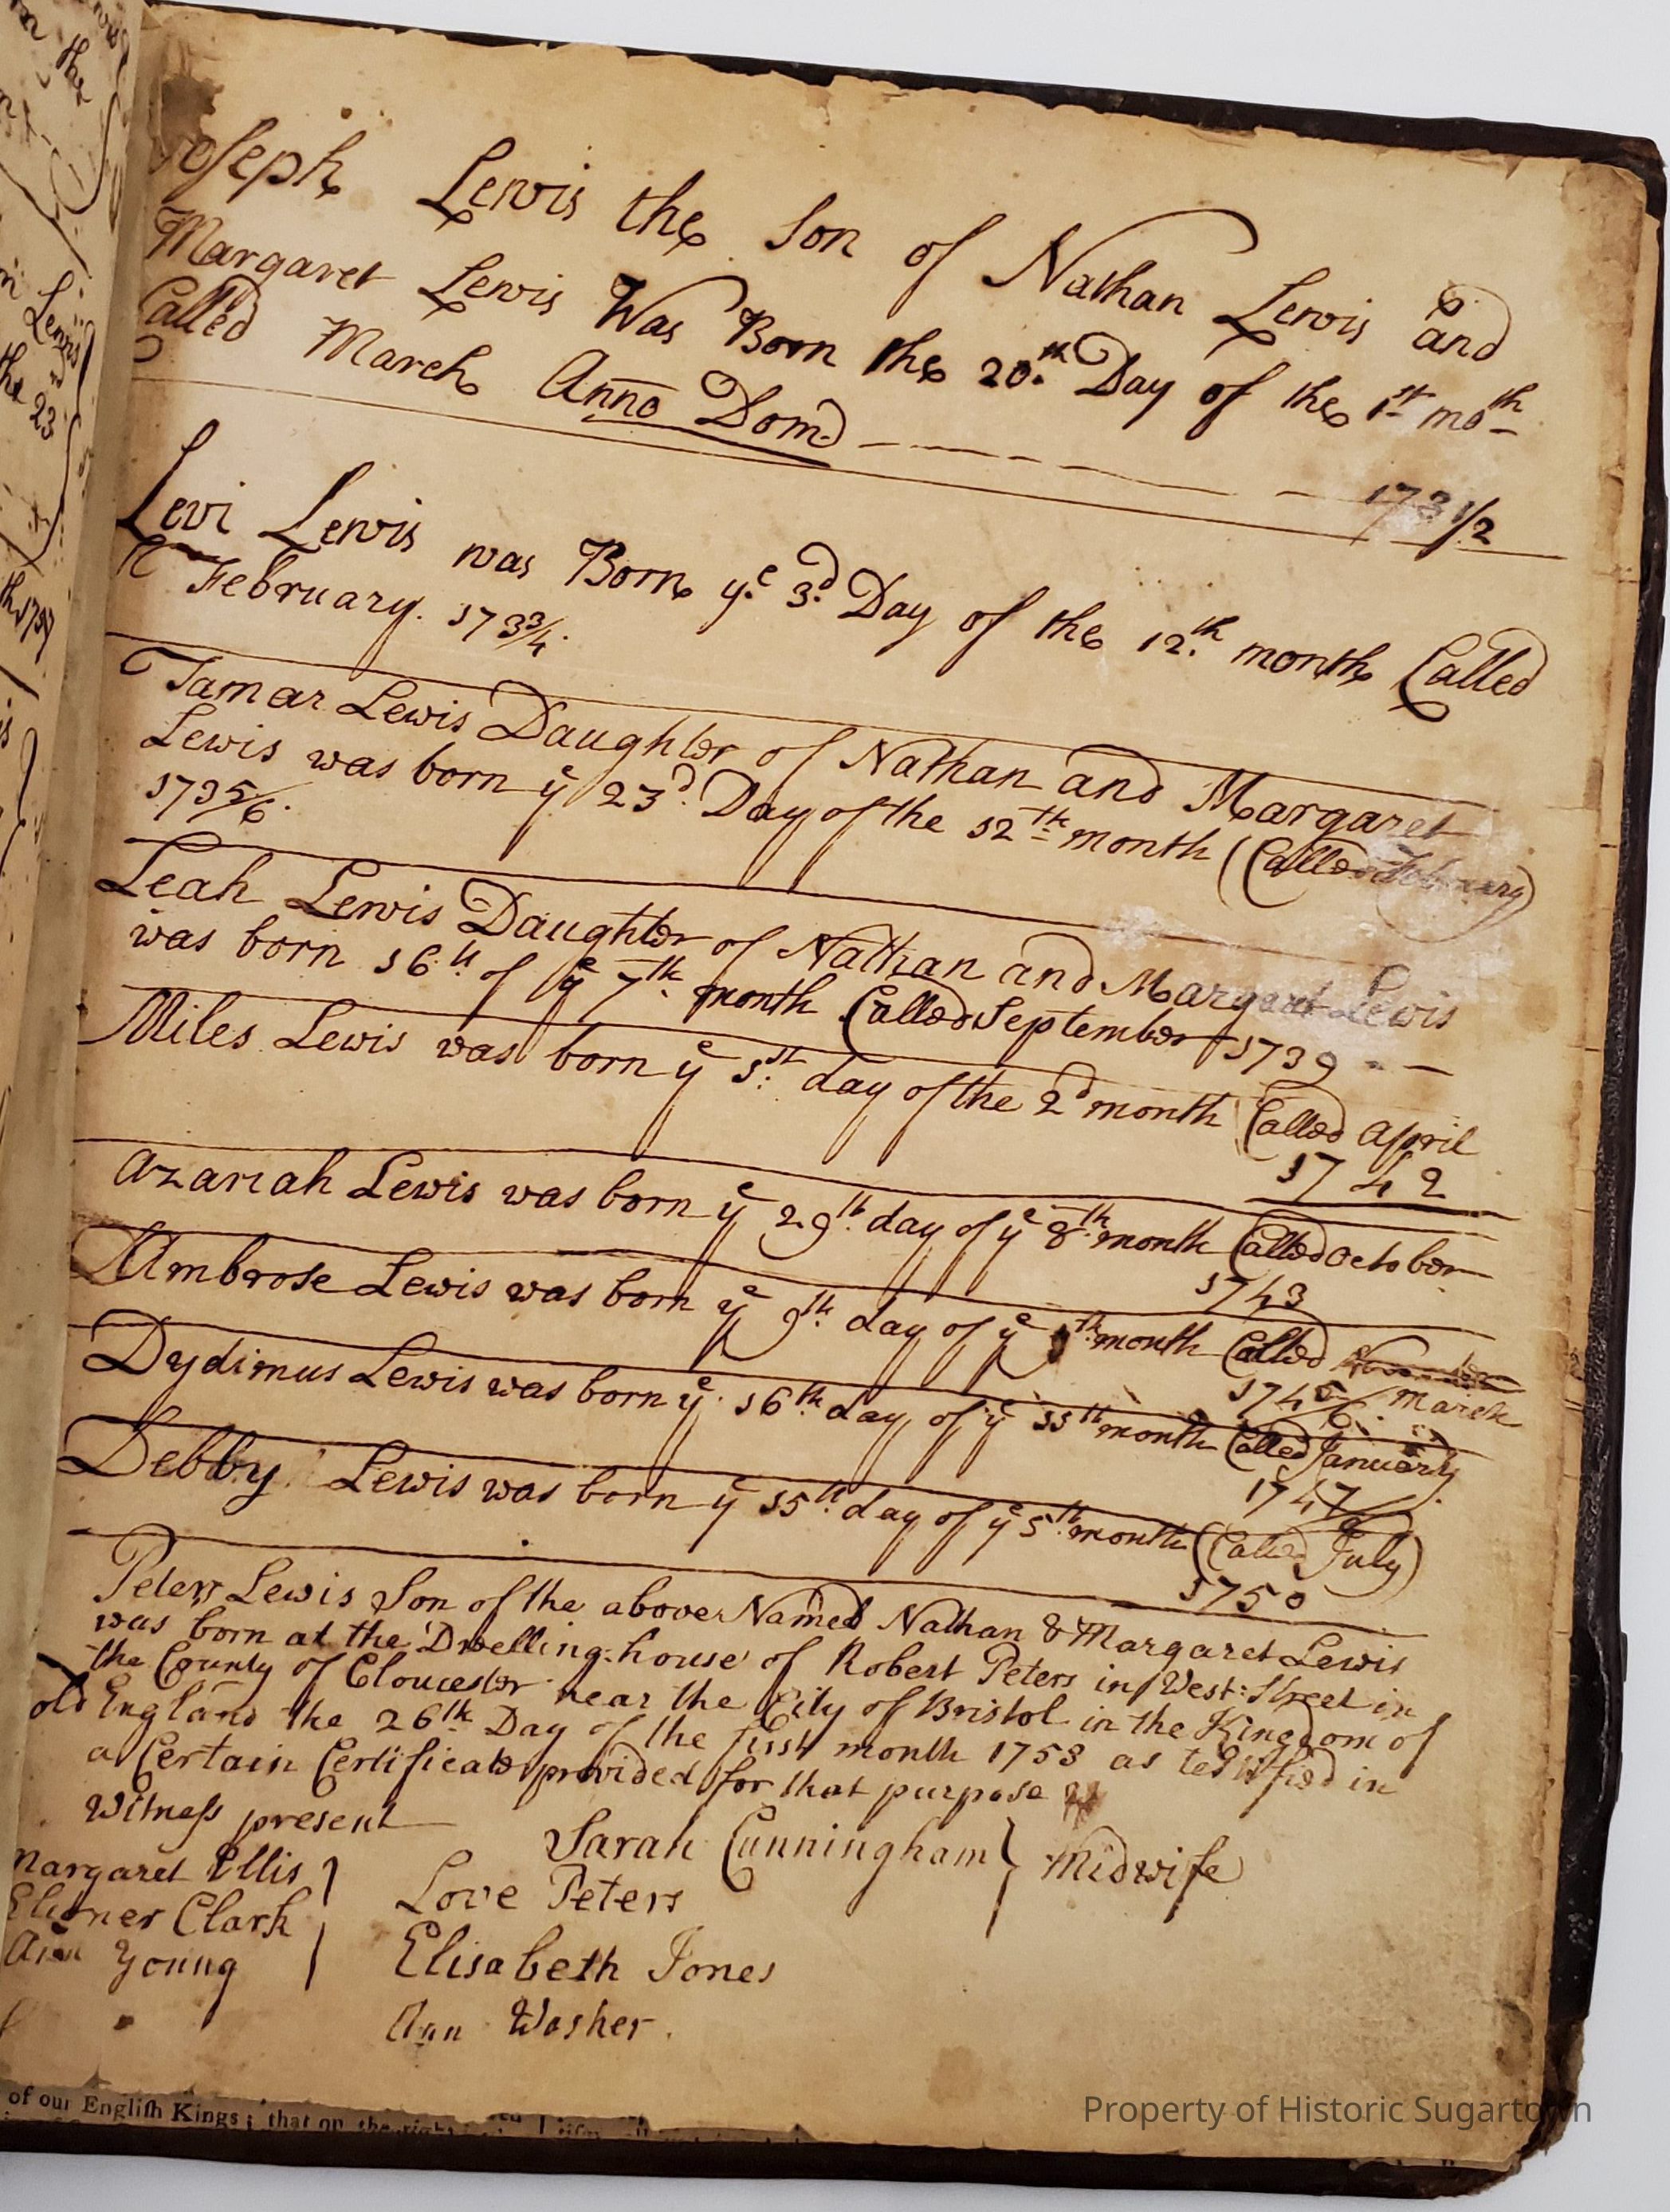 Joseph Lewis the Son of Nathan Lewis and
Margaret Lewis Was Born the 20th Day of the 1st moth
Called March Anno Domd
1731/2
Levi Lewis was Born ye 3d Day of the 12th month Called
February. 1733/4.
Tamar Lewis Daughter of Nathan and Margaret
Lewis was born ye 23d Day of the 12th month (Called February)
1735/6.
Leah Lewis Daughter of Nathan and Margaret Lewis
was born 16th of ye 7th month Called September 1739
Miles Lewis was born ye 1st day of the 2d month Called April
1742
Azariah Lewis was born ye 29th day of ye 8th month Called October
1743
Ambrose Lewis was born ye 9th day of ye 1th month Called November
1745/6 March
Dydimus Lewis was born ye 16th day of ye 11th month Called January
1747
Debby Lewis was born ye 15th day of ye 5th month (Called July)
1750
Peter Lewis Son of the above Named Nathan & Margaret Lewis
was born at the Dwelling-house of Robert Peters in West:Street in
the County of Gloucester near the City of Bristol in the Kingdom of
old England the 26th Day of the first month 1753 as testified in
a Certain Certificate provided for that purpose
Witneſs present
Sarah Cunningham } Midwife
Margaret Ellis
Love Peters
Elioner Clark
Elisabeth Jones
Ann Young
Ann Washer.
of our Engliſh Kings; that on the right
Property of Historic Sugartown